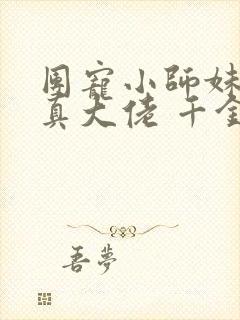 团寵小師妹
真大佬 千金
吾夢